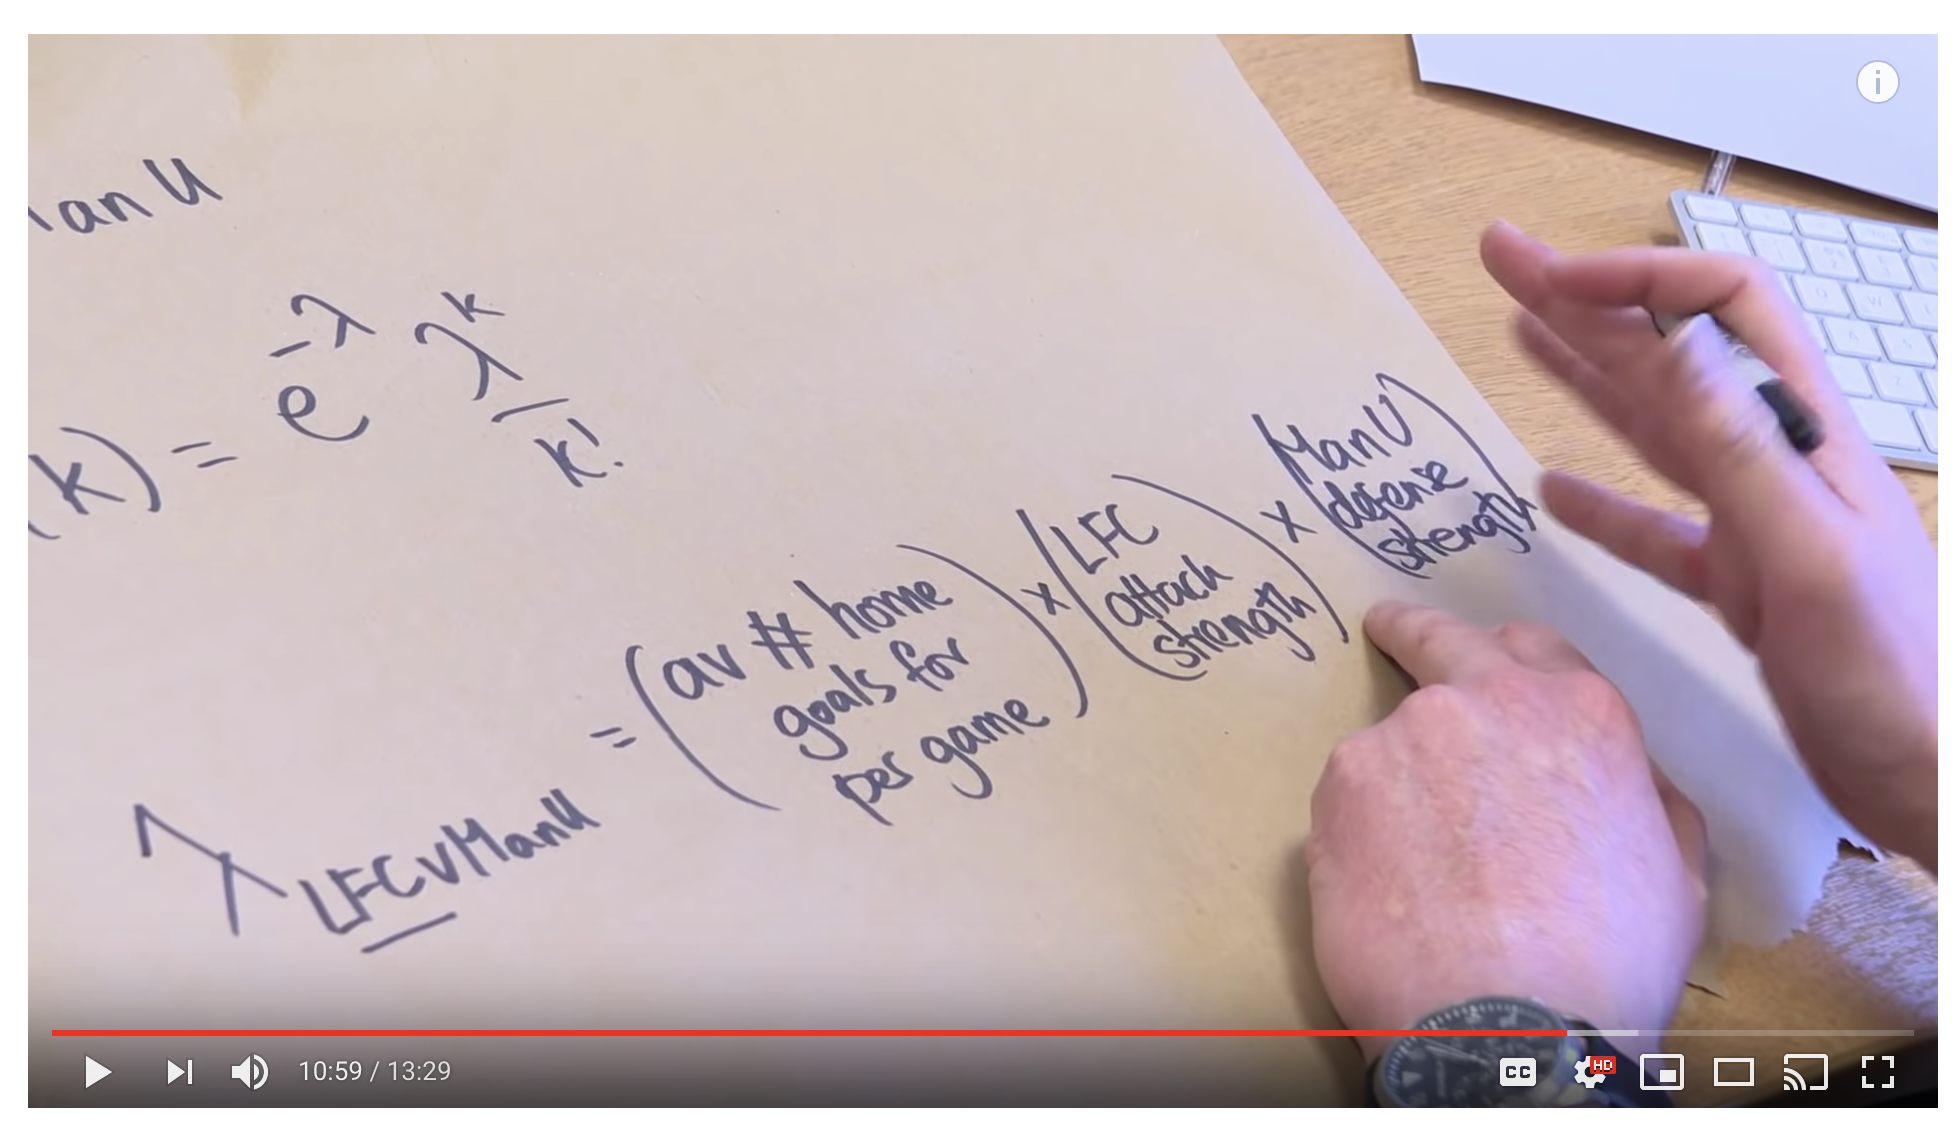 anU
(k) = e^-λ λ^k / k!
λ LFCvManU = (av # home goals for per game) x (LFC attack strength) x (ManU defense strength)
i
10:59 / 13:29
CC
HD